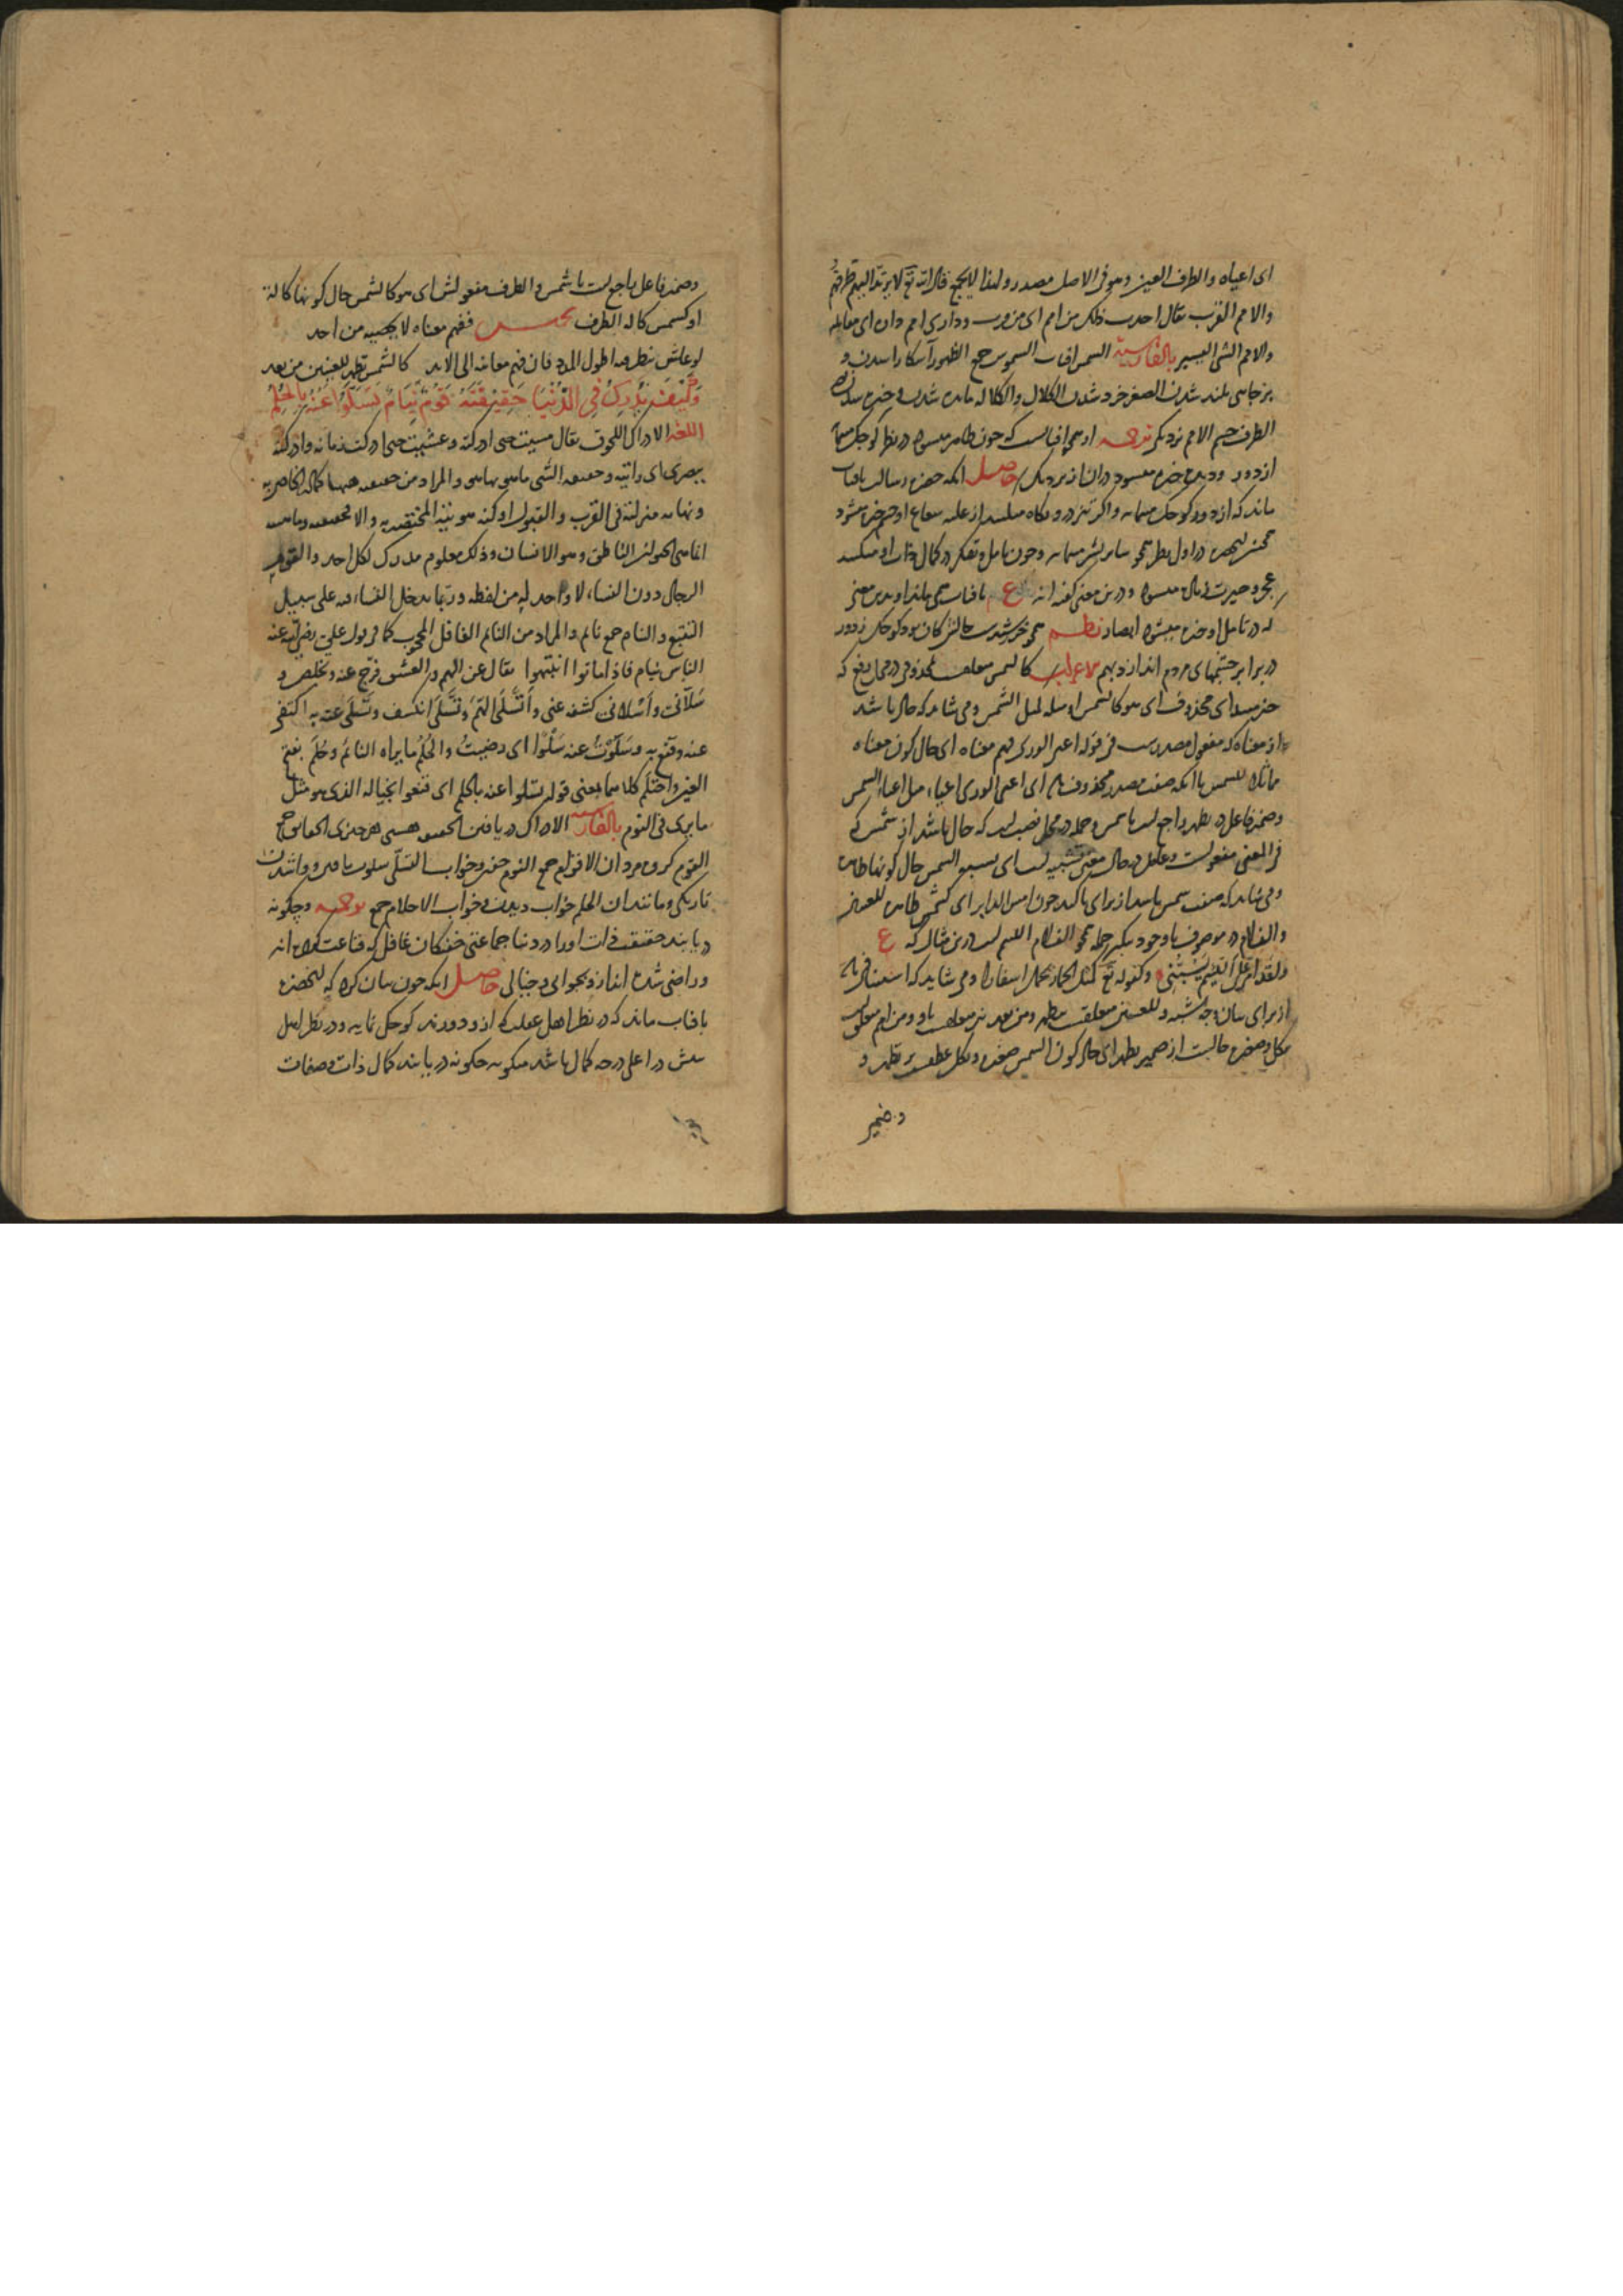 ای اعیاه والطرف العین وهو فی الاصل مصدر ولهذا لایجمع قال الله تع لا یرتد الیهم طرفهم
والامم القرب یقال اخذت ذلک من امم ای من قرب وداری امم داره ای مقابله
والامم الشی الیسیر بالفارسیة الشمس افتاب الشموس جمع الظهور آشکارا شدن و
بر جایی بلند شدن الصغر خرد شدن الکلال والکلالة مانده شدن و خیره شدن
الطرف چشم الامم نزدیکی ترجمه او همچو افتابست که چون ظاهر میشود در نظر کوچک مینماید
از دور و دیده خیره میشود در آن از نزدیک حاصل آنکه حضرت رسالت بافتاب
ماند که از دور کوچک مینماید و اگر تیز در و نگاه میکنند از غلبه شعاع او چشم خیره میشود
همچنین در اول نظر همچو سایر بشر مینماید و چون تامل و تفکر در کمال ذات او میکنند
عجز و حیرت زیاده میشود و درین معنی گفته اند ع بافتاب همی ماند او بدین معنی
که در تامل او خیره میشود ابصار نظم همچو خورشیدست حالش کان بود کوچک ز دور
در برابر چشمهای مردم اندازد بهم الاعراب کالشمس متعلقست بمحذوفی در محل رفع که
خبر مبتدای محذوف ای هو کالشمس او مثله مثل الشمس و می شاید که حال باشد
از معناه که مفعول مصدرست فی قوله اعیی الوری فهم معناه ای حال کون معناه
مانندا للشمس یا آنکه صفت مصدر محذوف باشد ای اعیی الوری اعیاء مثل اعیاء الشمس
وضمیر فاعل در تظهر راجع است باشمس وجمله در محل نصب است که حال باشد از شمس که
فی المعنی مفعولست وعامل در حال معنی تشبیه است ای یشبه الشمس حال کونها ظاهرة
ومی شاید که صفت شمس باشد از برای تاکید چون امس الدابر ای کشمس ظاهرة للعینین
والف لام در موصوف با وجود تنکیر جمله همچو الف لام اللئیم است درین مثال که ع
ولقد امر علی اللئیم یسبنی وکقوله تع کمثل الحمار یحمل اسفارا و می شاید که استیناف باشد
از برای بیان وجه شبه وللعینین متعلقست بتظهر ومن بعد نیز متعلقست باو ومن امم متعلقست
بتکل وصغیرة حالست از ضمیر تظهر ای حال کون الشمس صغیرة وتکل عطف بر تظهر و
وضمیر
وضمیر فاعل راجع است با شمس والطرف مفعولش ای هو کالشمس حال کونها کالة
او کشمس کالة الطرف تخمیس ففهم معناه لا یحصیه من احد
لو عاش ینظره اطول المدد فان فهم معانیه الی الابد کالشمس تظهر للعینین من بعد
وَكَيْفَ يُدْرِكُ فِي الدُّنْيَا حَقِيقَتَهُ قَوْمٌ نِيَامٌ تَسَلَّوْا عَنْهُ بِالْحُلُمِ
اللغة الادراک اللحوق یقال مشیت حتی ادرکته وعشت حتی ادرکت زمانه وادرکته
ببصری ای رایته وحقیقة الشی ما به هو هو والمراد من حقیقته ههنا کماله الخاص به
ونهایة منزلته فی القرب والقبول او کنه هویته المختصة به والا فحقیقته وماهیته
انما هی الحیوان الناطق وهو الانسان وذلک معلوم مدرک لکل احد والقوم
الرجال دون النساء لا واحد له من لفظه وربما یدخل النساء فیه علی سبیل
التبع والنیام جمع نائم والمراد من النائم الغافل المحجوب کما فی قول علی رضی الله عنه
الناس نیام فاذا ماتوا انتبهوا یقال عن الهم والعشق فرج عنه وتخلص و
سلانی واسلانی کشفه عنی وتسلی الهم وتسلی انکشف وتسلی عنه به اکتفی
عنه وقنع به وسلوت عنه سلوا ای رضیت والحلم ما یراه النائم وحلم بفتح
العین واحتلم کلاهما بمعنی قوله تسلوا عنه بالحلم ای قنعوا بخیاله الذی هو مثل
ما یری فی النوم بالفارسیة الادراک دریافتن الحقیقة هستی هر چیزی الحقایق ج
القوم گروه مردان الاقوام جمع النوم خفتن و خواب التسلی سلوت یافتن و واشدن
تاریکی و مانند آن الحلم خواب دیدن و خواب الاحلام جمع ترجمه و چگونه
دریابند حقیقت ذات او را در دنیا جماعتی خفتگان غافل که قناعت کرده اند
و راضی شده اند از و بخوابی و خیالی حاصل آنکه چون بیان کرد که آنحضرت
بافتاب ماند که در نظر اهل عقلت که ازو دورند کوچک نماید و در نظر اهل
بینش در اعلی درجه کمال باشد میگوید چگونه دریابند کمال ذات و صفات